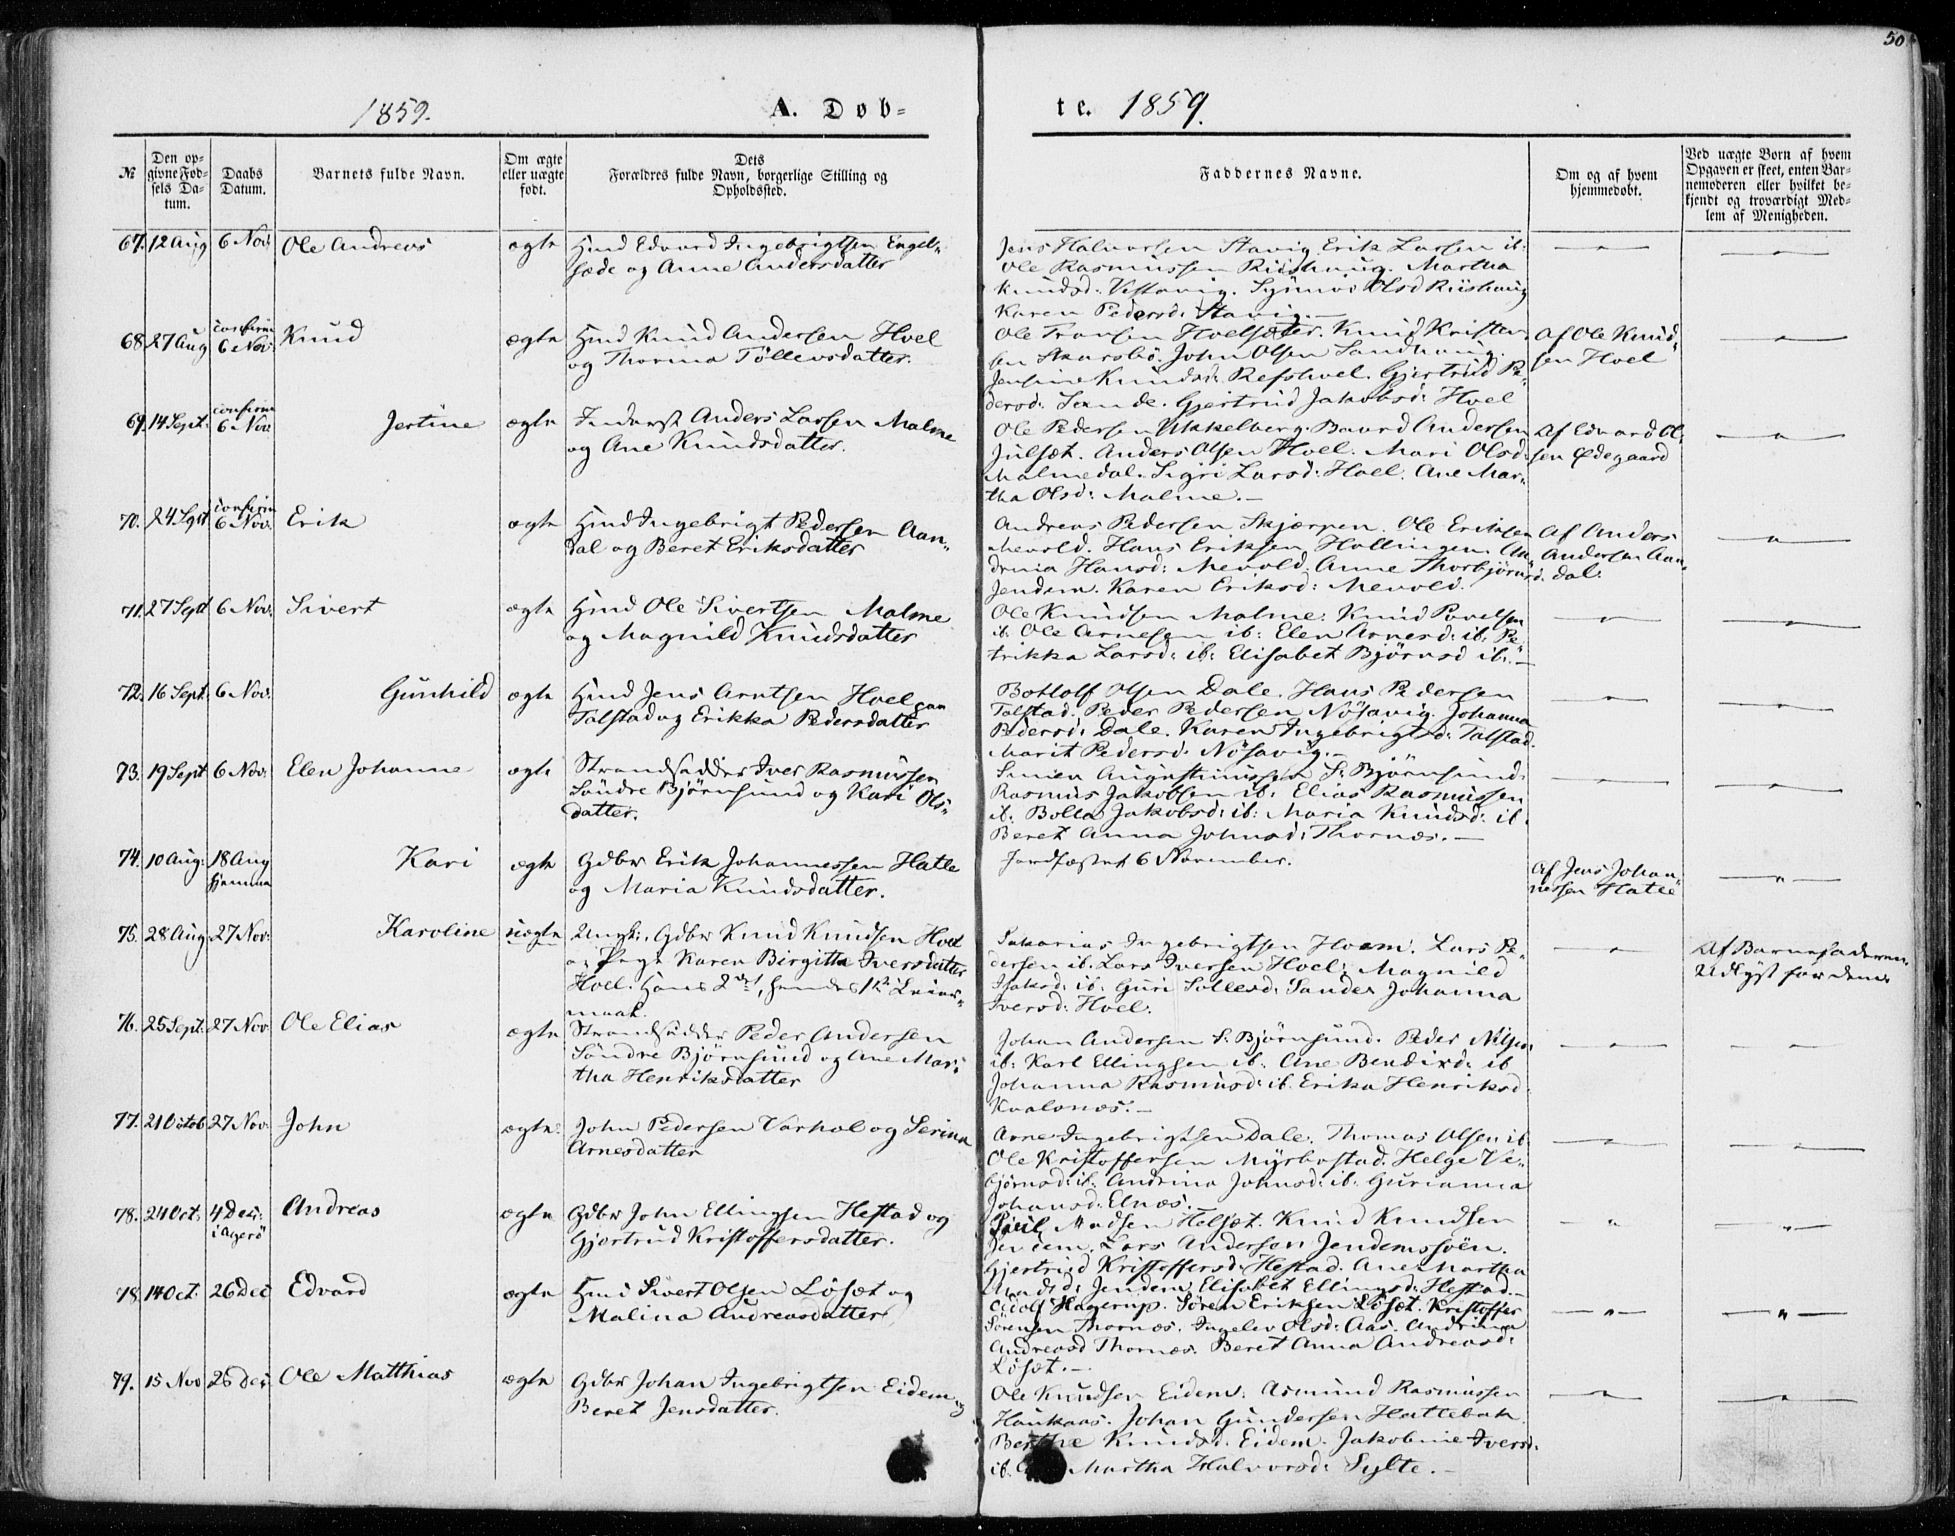 50
1859.
A. Døb=
te. 1859.
№
Den op=
givne Fød=
sels Da=
tum.
Daabs
Datum.
Barnets fulde Navn.
Om ægte
eller uægte
født.
Dets
Forældres fulde Navn, borgerlige Stilling og
Opholdssted.
Faddernes Navne.
Om og af hvem
hjemmedøbt.
Ved uægte Børn af hvem
Opgaven er skeet, enten Bar=
nemoderen eller hvilket be=
kjendt og troværdigt Med=
lem af Menigheden.
67. 12 Aug 6 Nov: Ole Andreas ægte
Hmd Edvard Ingebrigtsen Engel=
sæde og Anne Andersdatter
Jens Halvorsen Stavig Erik Larsen ib:
Ole Rasmussen Riishaug. Martha
Knudsd: Vestavig. Synnøv Olsd Riishaug
Karen Pedersd: Stavig.—
68 27 Aug confirm 6 Nov: Knud ægte
Hmd Knud Andersen Hoel
og Thorina Tøllevsdatter.
Ole Fransen Hoelsæter. Knud Kristen=
sen Skarsbø. John Olsen Sandhaug.
Jensine Knudsd: Refshoel. Gjertrud Pe=
dersd: Sande. Gjertrud Jakobsd: Hoel
Af Ole Knud=
sen Hoel
69. 14 Sept: confirm 6 Nov: Jertine ægte
Inderst Anders Larsen Malme
og Ane Knudsdatter.
Ole Pedersen Ukkelberg. Baard Andersen
Julsæt. Anders Olsen Hoel. Mari Olsd:
Malmedal. Sigri Larsd: Hoel. Ane Mar=
tha Olsd: Malme.—
Af Edvard Ol=
sen Ødegaard
70. 24 Sept confirm 6 Nov. Erik ægte
Hmd Ingebrigt Pedersen Aan=
dal og Beret Eriksdatter
Andreas Pedersen Skjærpen. Ole Eriksen
Mevold. Hans Eriksen Hollingen. An=
drina Hansd: Mevold. Anne Thorbjørnsd:
Jendem. Karen Eriksd: Mevold.
Af Anders
Andersen Aan=
dal.
71. 27 Sept 6 Nov. Sivert ægte
Hmd Ole Sivertsen Malme
og Magnild Knudsdatter
Ole Knudsen Malme. Knud Povelsen
ib. Ole Arnesen ib: Elen Arnesd: ib. Pe=
trikka Larsd: ib: Elisabet Bjørnsd ib:—
72. 16 Sept. 6 Nov. Gunhild ægte
Hmd Jens Arntsen Hoel paa
Talstad og Erikka Pedersdatter
Bottolf Olsen Dale. Hans Pedersen
Talstad. Peder Pedersen Nøsavig. Johanna
Pedersd: Dale. Karen Ingebrigtsd: Talstad.
Marit Pedersd: Nøsavig.—
73. 19 Sept 6 Nov: Elen Johanne ægte
Strandsidder Iver Rasmussen
Søndre Bjørnsund og Kari Ols=
datter.
Augustinussen S: Bjørnsund.
Rasmus Jakobsen ib: Elias Rasmussen
ib. Bolla Jakobsd: ib: Maria Knudsd: ib.
Beret Anna Johnsd: Thornæs.—
74. 10 Aug: 18 Aug hjemme Kari ægte
Gdbr Erik Johannessen Hatle
og Maria Knudsdatter.
Jordfæstet 6 November.
Af Jens Johan=
nessen Hatle
75. 28 Aug: 27 Nov: Karoline uægte
Ungk: Gdbr Knud Knudsen Hoel
og Pige Karen Birgitta Iversdatter
Hoel. Hans 2det, hendes 1te Leier=
maal.
Sakarias Ingebrigtsen Hoem. Lars Pe=
dersen ib. Lars Iversen Hoel. Magnild
Isaksd: ib: Guri Sollesd: Sandes Johanna
Iversd: Hoel.
Af Barnefaderen
Udlyst for denne
76. 25 Sept: 27 Nov Ole Elias ægte
Strandsidder Peder Andersen
Søndre Bjørnsund og Ane Mar=
tha Henriksdatter
Johan Andersen S. Bjørnsund. Peder Nilsen
ib: Karl Ellingsen ib. Ane Bendixd: ib
Johanna Rasmusd: ib. Erika Henriksd
Kvalsnæs.—
77. 21 Octob 27 Nov: John ægte.
John Pedersen Varhol og Serina
Arnesdatter
Arne Ingebrigtsen Dale. Thomas Olsen ib
Ole Kristoffersen Myrbostad. Helge Ve=
bjørnsd: ib. Andrina Johnsd: ib. Gurianna
Johansd: Elnæs.
78. 24 Oct: 4 Dec: i Agerø Andreas ægte
Gdbr John Ellingsen Hestad og
Gjertrud Kristoffersdatter.
Madsen Helsæt. Knud Knudsen
Jendem. Lars Andersen Jendemssøen.
Gjertrud Kristoffersd: Hestad. Ane Martha
Madsd: Jendem. Elisabet Ellingsd: Hestad.—
78. 14 Oct. 26 Dec Edvard ægte
Hmd Sivert Olsen Løsæt og
Malina Andreasdatter
Adolf Hagerup. Søren Eriksen Løsæt. Kristoffer
Sørensen Thornæs. Ingelev Olsd: Aas. Andrina
Andreasd Thornæs. Beret Anna Andreasd:
Løsæt.—
79. 15 Nov 26 Dec Ole Matthias ægte
Gdbr Johan Ingebrigtsen Eidem og
Beret Jensdatter.
Ole Knudsen Eidem. Asmund Rasmussen
Haukaas. Johan Gundersen Hattebak
Berthe Knudsd. Eidem. Jakobine Iversd:
ib. Martha Halvorsd: Sylte.—